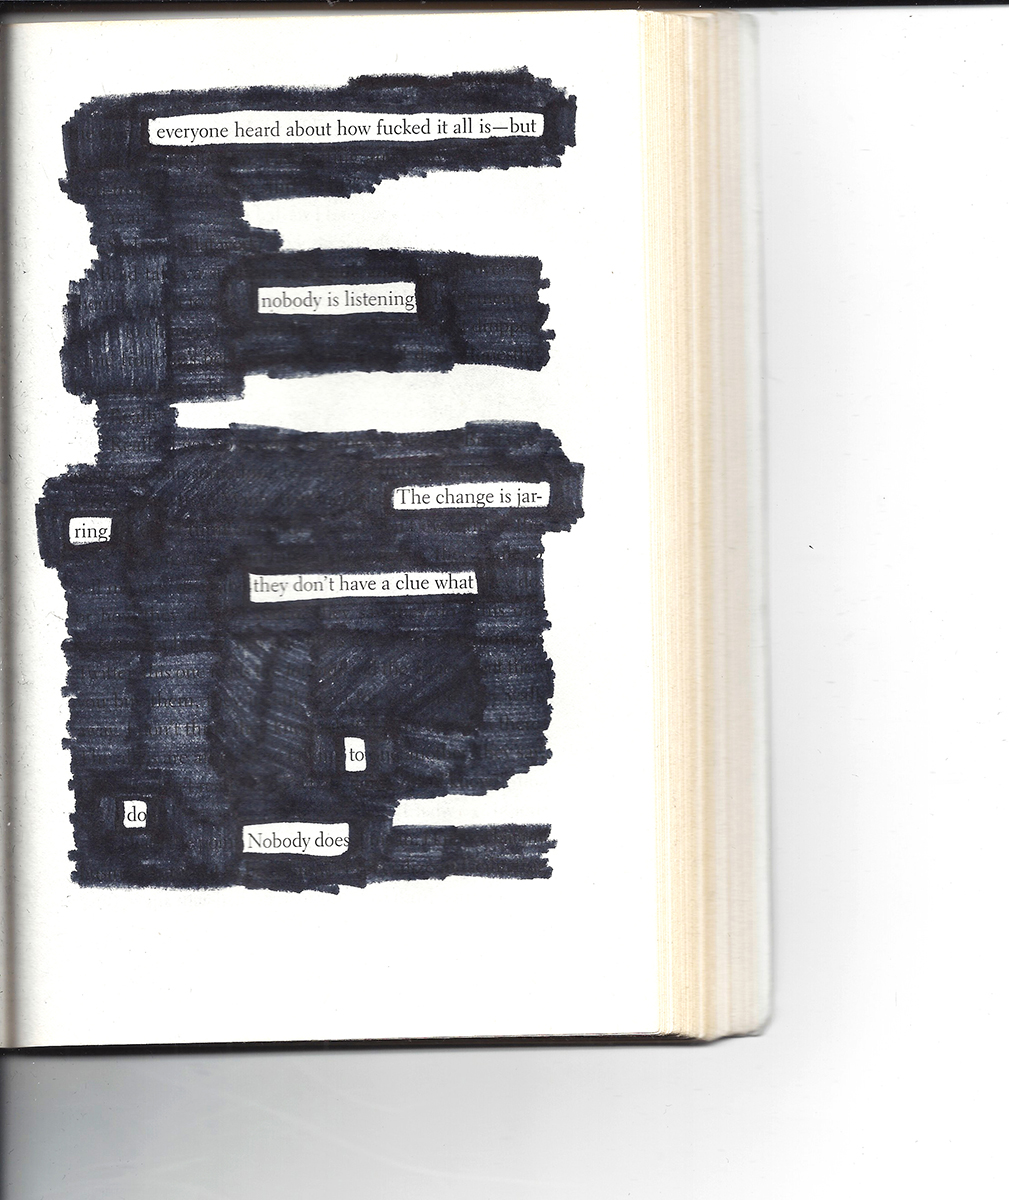 everyone heard about how fucked it all is—but
nobody is listening
The change is jar-
ring.
they don't have a clue what
to
do
Nobody does